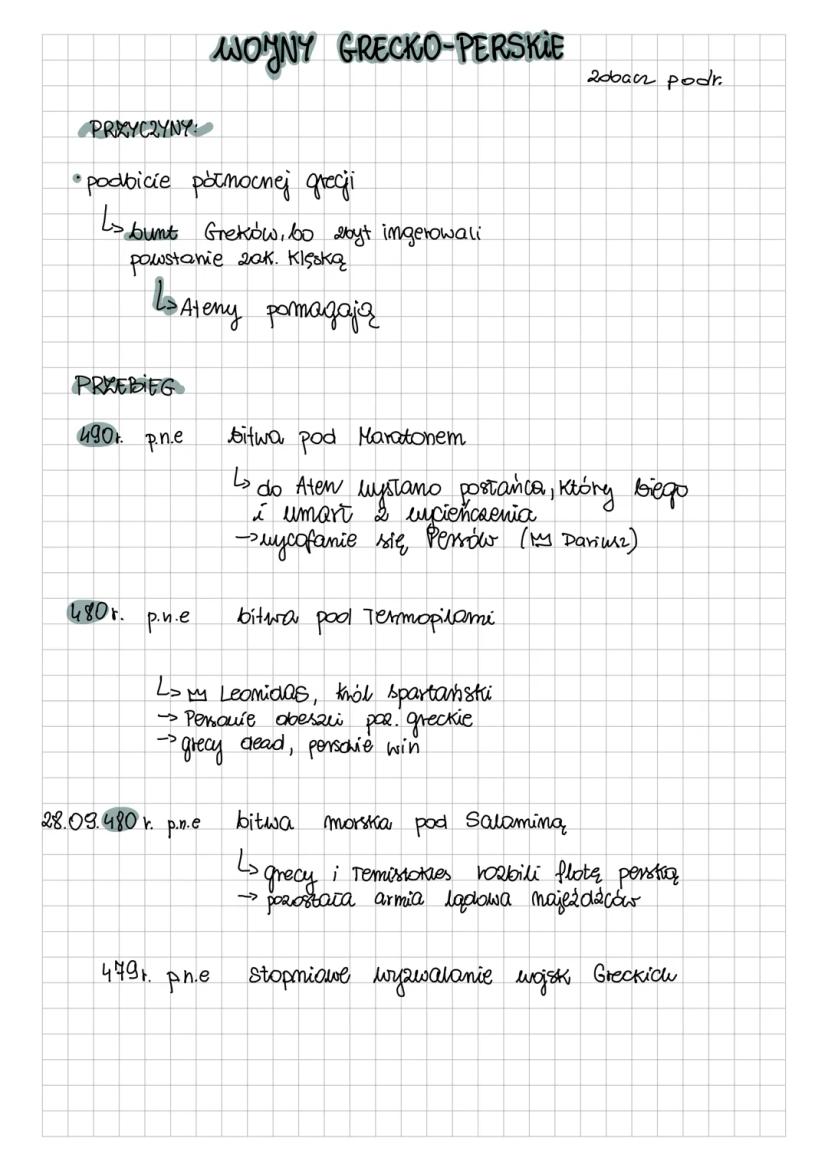 WOJNY GRECKO-PERSKIE
zobacz podr.
PRZYCZYNY:
• podbicie północnej grecji
↳ bunt Greków, bo zbyt ingerowali
powstanie zak. klęską
↳ Ateny pomagają
PRZEBIEG
490r. p.n.e bitwa pod Maratonem
↳ do Aten wysłano posłańca, który biego
i umarł z wycieńczenia
→ wycofanie się Persów ( Dariusz)
480r. p.n.e bitwa pod Termopilami
↳ Leonidas, król spartański
→ Persowie obeszli poz. greckie
→ grecy dead, persowie win
28.09.480 r. p.n.e bitwa morska pod Salaminą
↳ grecy i Temistokles rozbili flotę perską
→ pozostała armia lądowa najeźdźców
479r. p.n.e stopniowe wyzwalanie wojsk Greckich